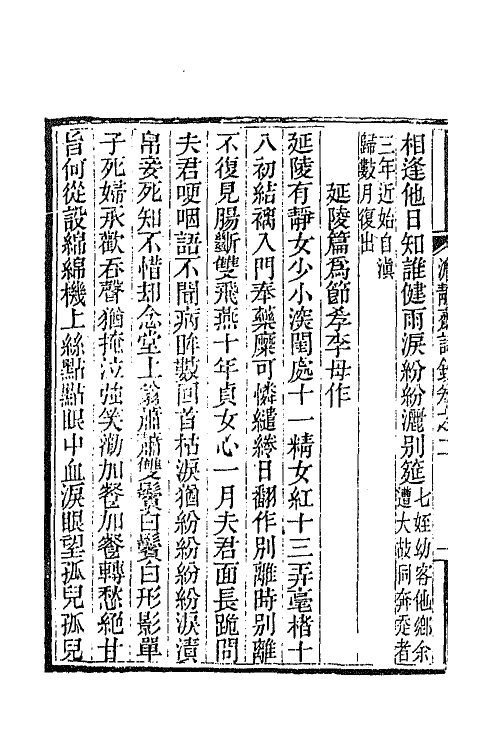 澹靜齋詩鈔卷之二
相逢他日知誰健雨淚紛紛灑別筵七姪幼客他鄉余
遭大故同奔走者
三年近始自滇
歸數月復出
延陵篇爲節孝李母作
延陵有靜女少小深閨處十一精女紅十三弄毫楮十
八初結褵入門奉藥糜可憐繾綣日翻作別離時別離
不復見腸斷雙飛燕十年貞女心一月夫君面長跪問
夫君哽咽語不聞病眸數回首枯淚猶紛紛紛紛淚漬
帛妾死知不惜却念堂上翁蕭蕭雙鬢白鬢白形影單
子死婦承歡吞聲猶掩泣強笑勸加餐加餐轉愁絕甘
旨何從設綿綿機上絲點點眼中血淚眼望孤兒孤兒